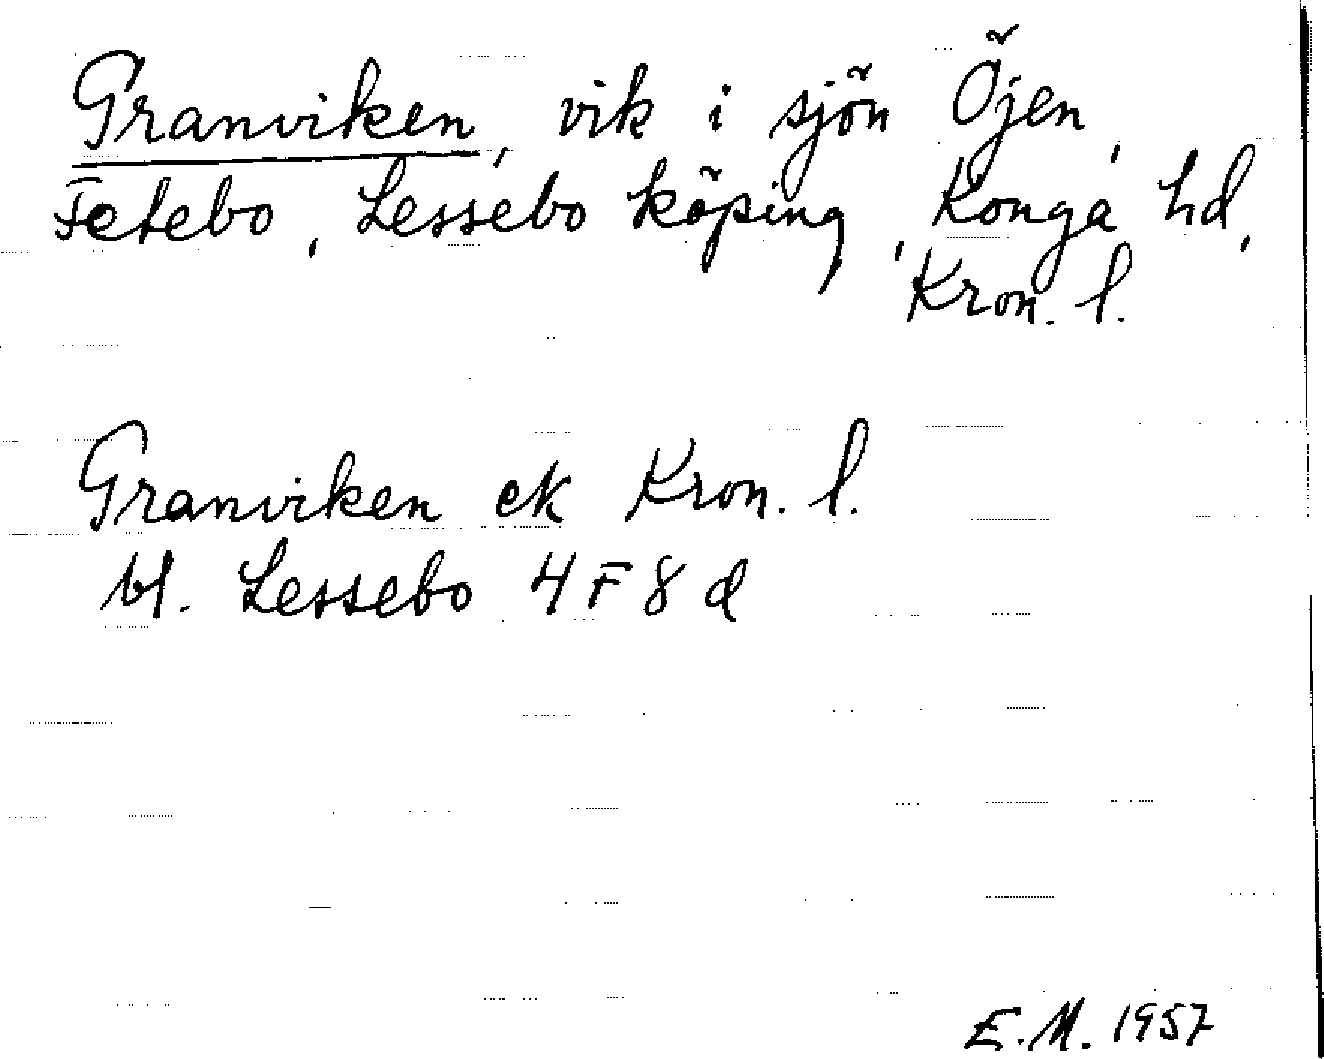 Granviken, vik i sjön Öjen,
Fetebo, Lessebo köping, Konga hd,
Kron. l.
Granviken ek Kron. l.
bl. Lessebo 4 F 8 d
E.M. 1957